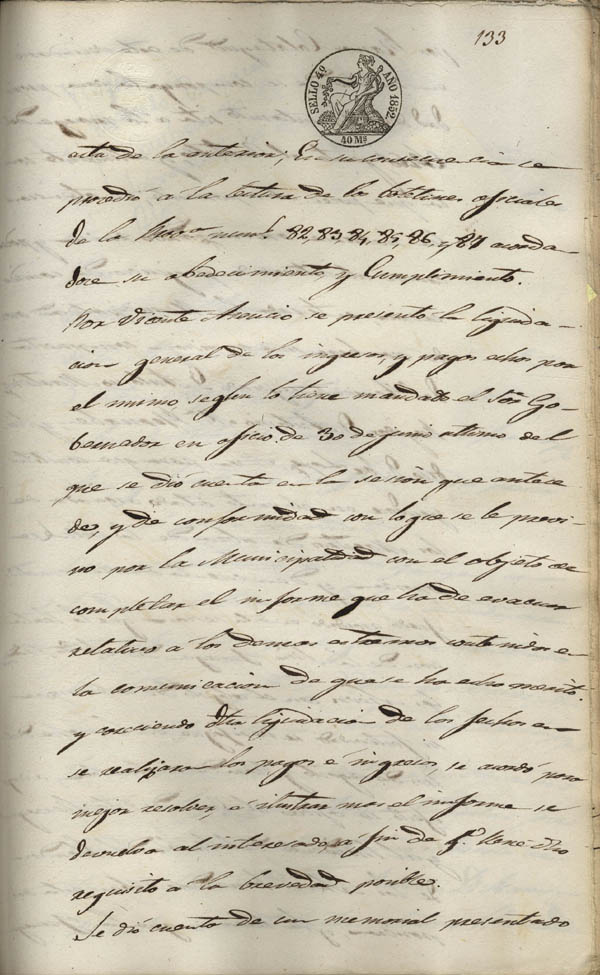 133
SELLO 4º AÑO 1852
40 Ms
acta de la anterior; En su consecuencia se
procedió a la lectura de los boletines oficiales
de la Prova nums. 82, 83, 84, 85, 86, y 87 acorda
dose su obedecimiento y Cumplimiento.
Por Vicente se presentó la liquida-
cion general de los ingresos, y pagos echos por
el mismo segun lo tiene mandado el Sor Go-
bernador en oficio de 30 de junio ultimo del
que se dió cuenta en la sesión que antece
de, y de conformidad con lo que se le previ-
no por la Municipalidad con el objeto de
completar el informe que ha de evacuar
relativo á los demas estremos contenidos en
la comunicacion de que se ha echo merito.
y careciendo dha liquidacion de las fechas en
se realizaron los pagos é ingresos, se acordó para
mejor resolver, é ilustrar mas el informe se
devuelva al interesado, á fin de qe llene dho
requisito á la brevedad posible.
Se dió cuenta de un memorial presentado